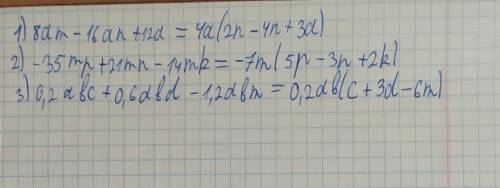 1) 8am - 16an + 12a = 4a(2n - 4n + 3a)
2) -35mp + 21mn - 14mk = -7m(5p - 3n + 2k)
3) 0,2abc + 0,6abd - 1,2abm = 0,2ab(c + 3d - 6m)